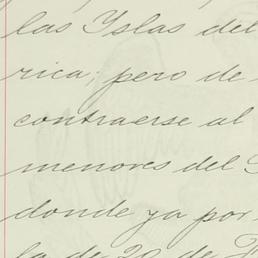 las Yslas del
rica; pero de
contraerse al
menores del
donde ya por
la de 20 de